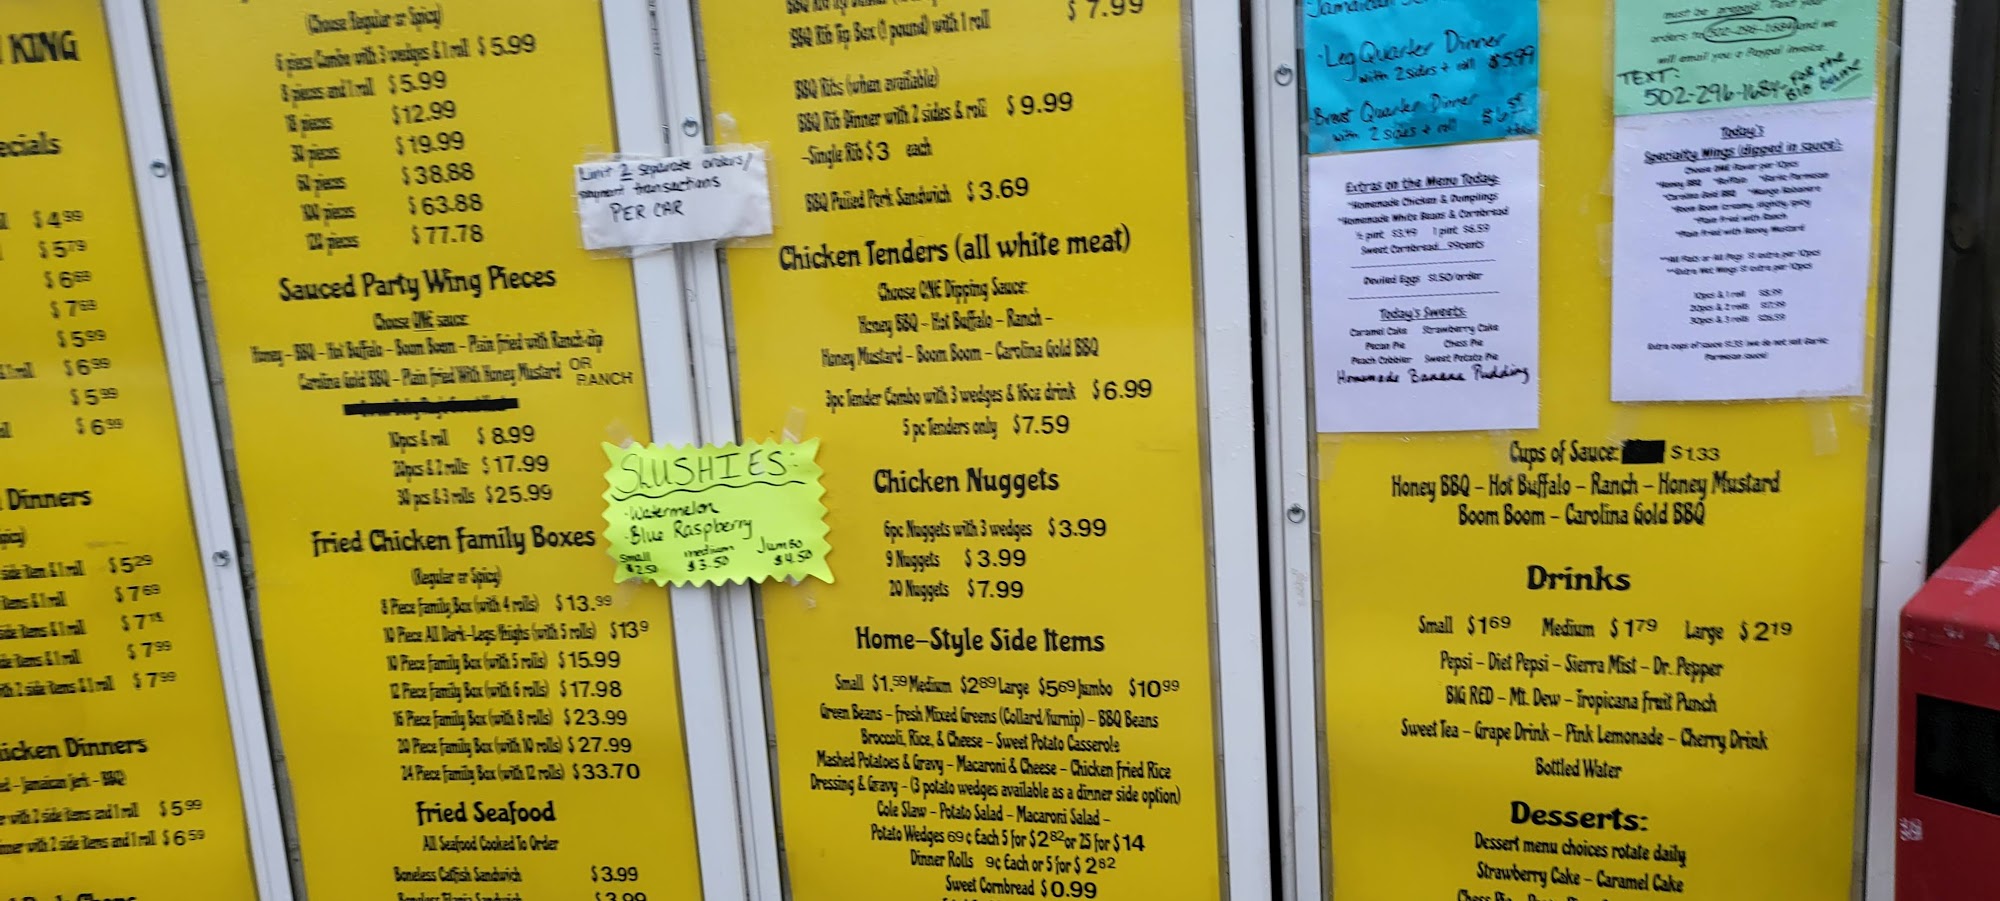 KING
ecials
$ 4.99
$ 5.79
$ 6.69
$ 7.69
$ 5.99
$ 6.99
$ 5.99
$ 6.99
Dinners
side item & 1 roll $ 5.29
items & 1 roll $ 7.69
side items & 1 roll
side items & 1 roll $ 7.99
with 2 side items & 1 roll $ 7.99
icken Dinners
- Jamaican Jerk - BBQ
with 2 side items and 1 roll $ 5.99
inner with 2 side items and 1 roll $ 6.59
(Choose Regular or Spicy)
6 piece Combo with 3 wedges & 1 roll $ 5.99
8 pieces and 1 roll $ 5.99
18 pieces $12.99
30 pieces $19.99
60 pieces $38.88
100 pieces $63.88
120 pieces $77.78
Sauced Party Wing Pieces
Choose ONE sauce:
Honey - BBQ - Hot Buffalo - Boom Boom - Plain fried with Ranch dip
Carolina Gold BBQ - Plain Fried With Honey Mustard OR RANCH
10pcs & roll $ 8.99
20pcs & 2 rolls $17.99
30 pcs & 3 rolls $25.99
Fried Chicken Family Boxes
(Regular or Spicy)
8 Piece Family Box (with 4 rolls) $13.99
10 Piece All Dark-Legs/thighs (with 5 rolls) $13 9
10 Piece Family Box (with 5 rolls) $15.99
12 Piece Family Box (with 6 rolls) $17.98
16 Piece Family Box (with 8 rolls) $23.99
20 Piece Family Box (with 10 rolls) $27.99
24 Piece Family Box (with 12 rolls) $33.70
Fried Seafood
All Seafood Cooked To Order
Boneless Catfish Sandwich $3.99
Limit 2 separate orders/
payment transactions
PER CAR
SLUSHIES:
- Watermelon
- Blue Raspberry
Small medium Jumbo
$2.50 $3.50 $4.50
BBQ Rib Tip Box (1 pound) with 1 roll $ 7.99
BBQ Ribs (when available)
BBQ Rib Dinner with 2 sides & roll $ 9.99
-Single Rib $ 3 each
BBQ Pulled Pork Sandwich $ 3.69
Chicken Tenders (all white meat)
Choose ONE Dipping Sauce:
Honey BBQ - Hot Buffalo - Ranch -
Honey Mustard - Boom Boom - Carolina Gold BBQ
3pc Tender Combo with 3 wedges & 16oz drink $ 6.99
5 pc Tenders only $7.59
Chicken Nuggets
6pc Nuggets with 3 wedges $ 3.99
9 Nuggets $ 3.99
20 Nuggets $ 7.99
Home-Style Side Items
Small $1.59 Medium $2.89 Large $5.69 Jumbo $10.99
Green Beans - Fresh Mixed Greens (Collard/Turnip) - BBQ Beans
Broccoli, Rice, & Cheese - Sweet Potato Casserole
Mashed Potatoes & Gravy - Macaroni & Cheese - Chicken Fried Rice
Dressing & Gravy - (3 potato wedges available as a dinner side option)
Cole Slaw - Potato Salad - Macaroni Salad -
Potato Wedges 69¢ Each 5 for $2.82 or 25 for $14
Dinner Rolls 9¢ Each or 5 for $ 2.82
Sweet Cornbread $ 0.99
Jamaican
- Leg Quarter Dinner
with 2 sides + roll $5.99
- Breast Quarter Dinner
with 2 sides + roll
Extras on the Menu Today:
*Homemade Chicken & Dumplings
*Homemade White Beans & Cornbread
½ pint $3.49 1 pint $6.59
Sweet Cornbread...99cents
Deviled Eggs $1.50/order
Today's Sweets:
Caramel Cake Strawberry Cake
Pecan Pie Chess Pie
Peach Cobbler Sweet Potato Pie
Homemade Banana Pudding
must be prepaid. Text your
orders to 502-296-1684 and we
will email you a Paypal invoice.
TEXT:
502-296-1684 for the
Today's
Specialty Wings (dipped in sauce):
Choose ONE flavor per 10pcs
*Honey BBQ *Buffalo *Garlic Parmesan
*Carolina Gold BBQ *Mango Habanero
*Boom Boom (creamy, slightly spicy
*Plain fried with Ranch
*Plain Fried with Honey Mustard
**All Flats or All Pegs $1 extra per 10pcs
**Extra Wet Wings $1 extra per 10pcs
10pcs & 1 roll $8.99
20pcs & 2 rolls $17.99
30pcs & 3 rolls $26.59
Extra cups of sauce $1.33 (we do not sell Garlic
Parmesan sauce)
Cups of Sauce: $1.33
Honey BBQ - Hot Buffalo - Ranch - Honey Mustard
Boom Boom - Carolina Gold BBQ
Drinks
Small $1.69 Medium $1.79 Large $2.19
Pepsi - Diet Pepsi - Sierra Mist - Dr. Pepper
BIG RED - Mt. Dew - Tropicana Fruit Punch
Sweet Tea - Grape Drink - Pink Lemonade - Cherry Drink
Bottled Water
Desserts:
Dessert menu choices rotate daily
Strawberry Cake - Caramel Cake